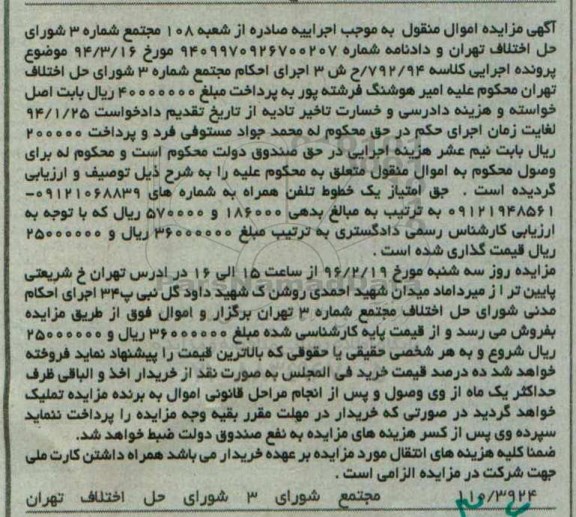 آگهی مزایده اموال منقول به موجب اجراییه صادره از شعبه ۱۰۸ مجتمع شماره ۳ شورای
حل اختلاف تهران و دادنامه شماره ۹۴۰۹۹۷۰۹۲۶۷۰۰۲۰۷ مورخ ۹۴/۳/۱۶ موضوع
پرونده اجرایی کلاسه ۷۹۲/۹۴/ح ش ۳ اجرای احکام مجتمع شماره ۳ شورای حل اختلاف
تهران محکوم علیه امیر هوشنگ فرشته پور به پرداخت مبلغ ۴۰۰۰۰۰۰۰ ریال بابت اصل
خواسته و هزینه دادرسی و خسارت تاخیر تادیه از تاریخ تقدیم دادخواست ۹۴/۱/۲۵
لغایت زمان اجرای حکم در حق محکوم له محمد جواد مستوفی فرد و پرداخت ۲۰۰۰۰۰۰
ریال بابت نیم عشر هزینه اجرایی در حق صندوق دولت محکوم است و محکوم له برای
وصول محکوم به اموال منقول متعلق به محکوم علیه را به شرح ذیل توصیف و ارزیابی
گردیده است . حق امتیاز یک خطوط تلفن همراه به شماره های ۰۹۱۲۱۰۶۸۸۳۹-
۰۹۱۲۱۹۴۸۵۶۱ به ترتیب به مبالغ بدهی ۱۸۶۰۰۰ و ۵۷۰۰۰۰ ریال که با توجه به
ارزیابی کارشناس رسمی دادگستری به ترتیب مبلغ ۳۶۰۰۰۰۰۰ ریال و ۲۵۰۰۰۰۰۰
ریال قیمت گذاری شده است .
مزایده روز سه شنبه مورخ ۹۶/۲/۱۹ از ساعت ۱۵ الی ۱۶ در ادرس تهران خ شریعتی
پایین تر از میرداماد میدان شهید احمدی روشن ک شهید داود گل نبی پ۳۴ اجرای احکام
مدنی شورای حل اختلاف مجتمع شماره ۳ تهران برگزار و اموال فوق از طریق مزایده
بفروش می رسد و از قیمت پایه کارشناسی شده مبلغ ۳۶۰۰۰۰۰۰ ریال و ۲۵۰۰۰۰۰۰
ریال شروع و به هر شخصی حقیقی یا حقوقی که بالاترین قیمت را پیشنهاد نماید فروخته
خواهد شد ده درصد قیمت خرید فی المجلس به صورت نقد از خریدار اخذ و الباقی ظرف
حداکثر یک ماه از وی وصول و پس از انجام مراحل قانونی اموال به برنده مزایده تملیک
خواهد گردید در صورتی که خریدار در مهلت مقرر بقیه وجه مزایده را پرداخت ننماید
سپرده وی پس از کسر هزینه های مزایده به نفع صندوق دولت ضبط خواهد شد.
ضمنا کلیه هزینه های انتقال مورد مزایده بر عهده خریدار می باشد همراه داشتن کارت ملی
جهت شرکت در مزایده الزامی است .
۱۱۰/۳۹۲۴ مجتمع شورای ۳ شورای حل اختلاف تهران